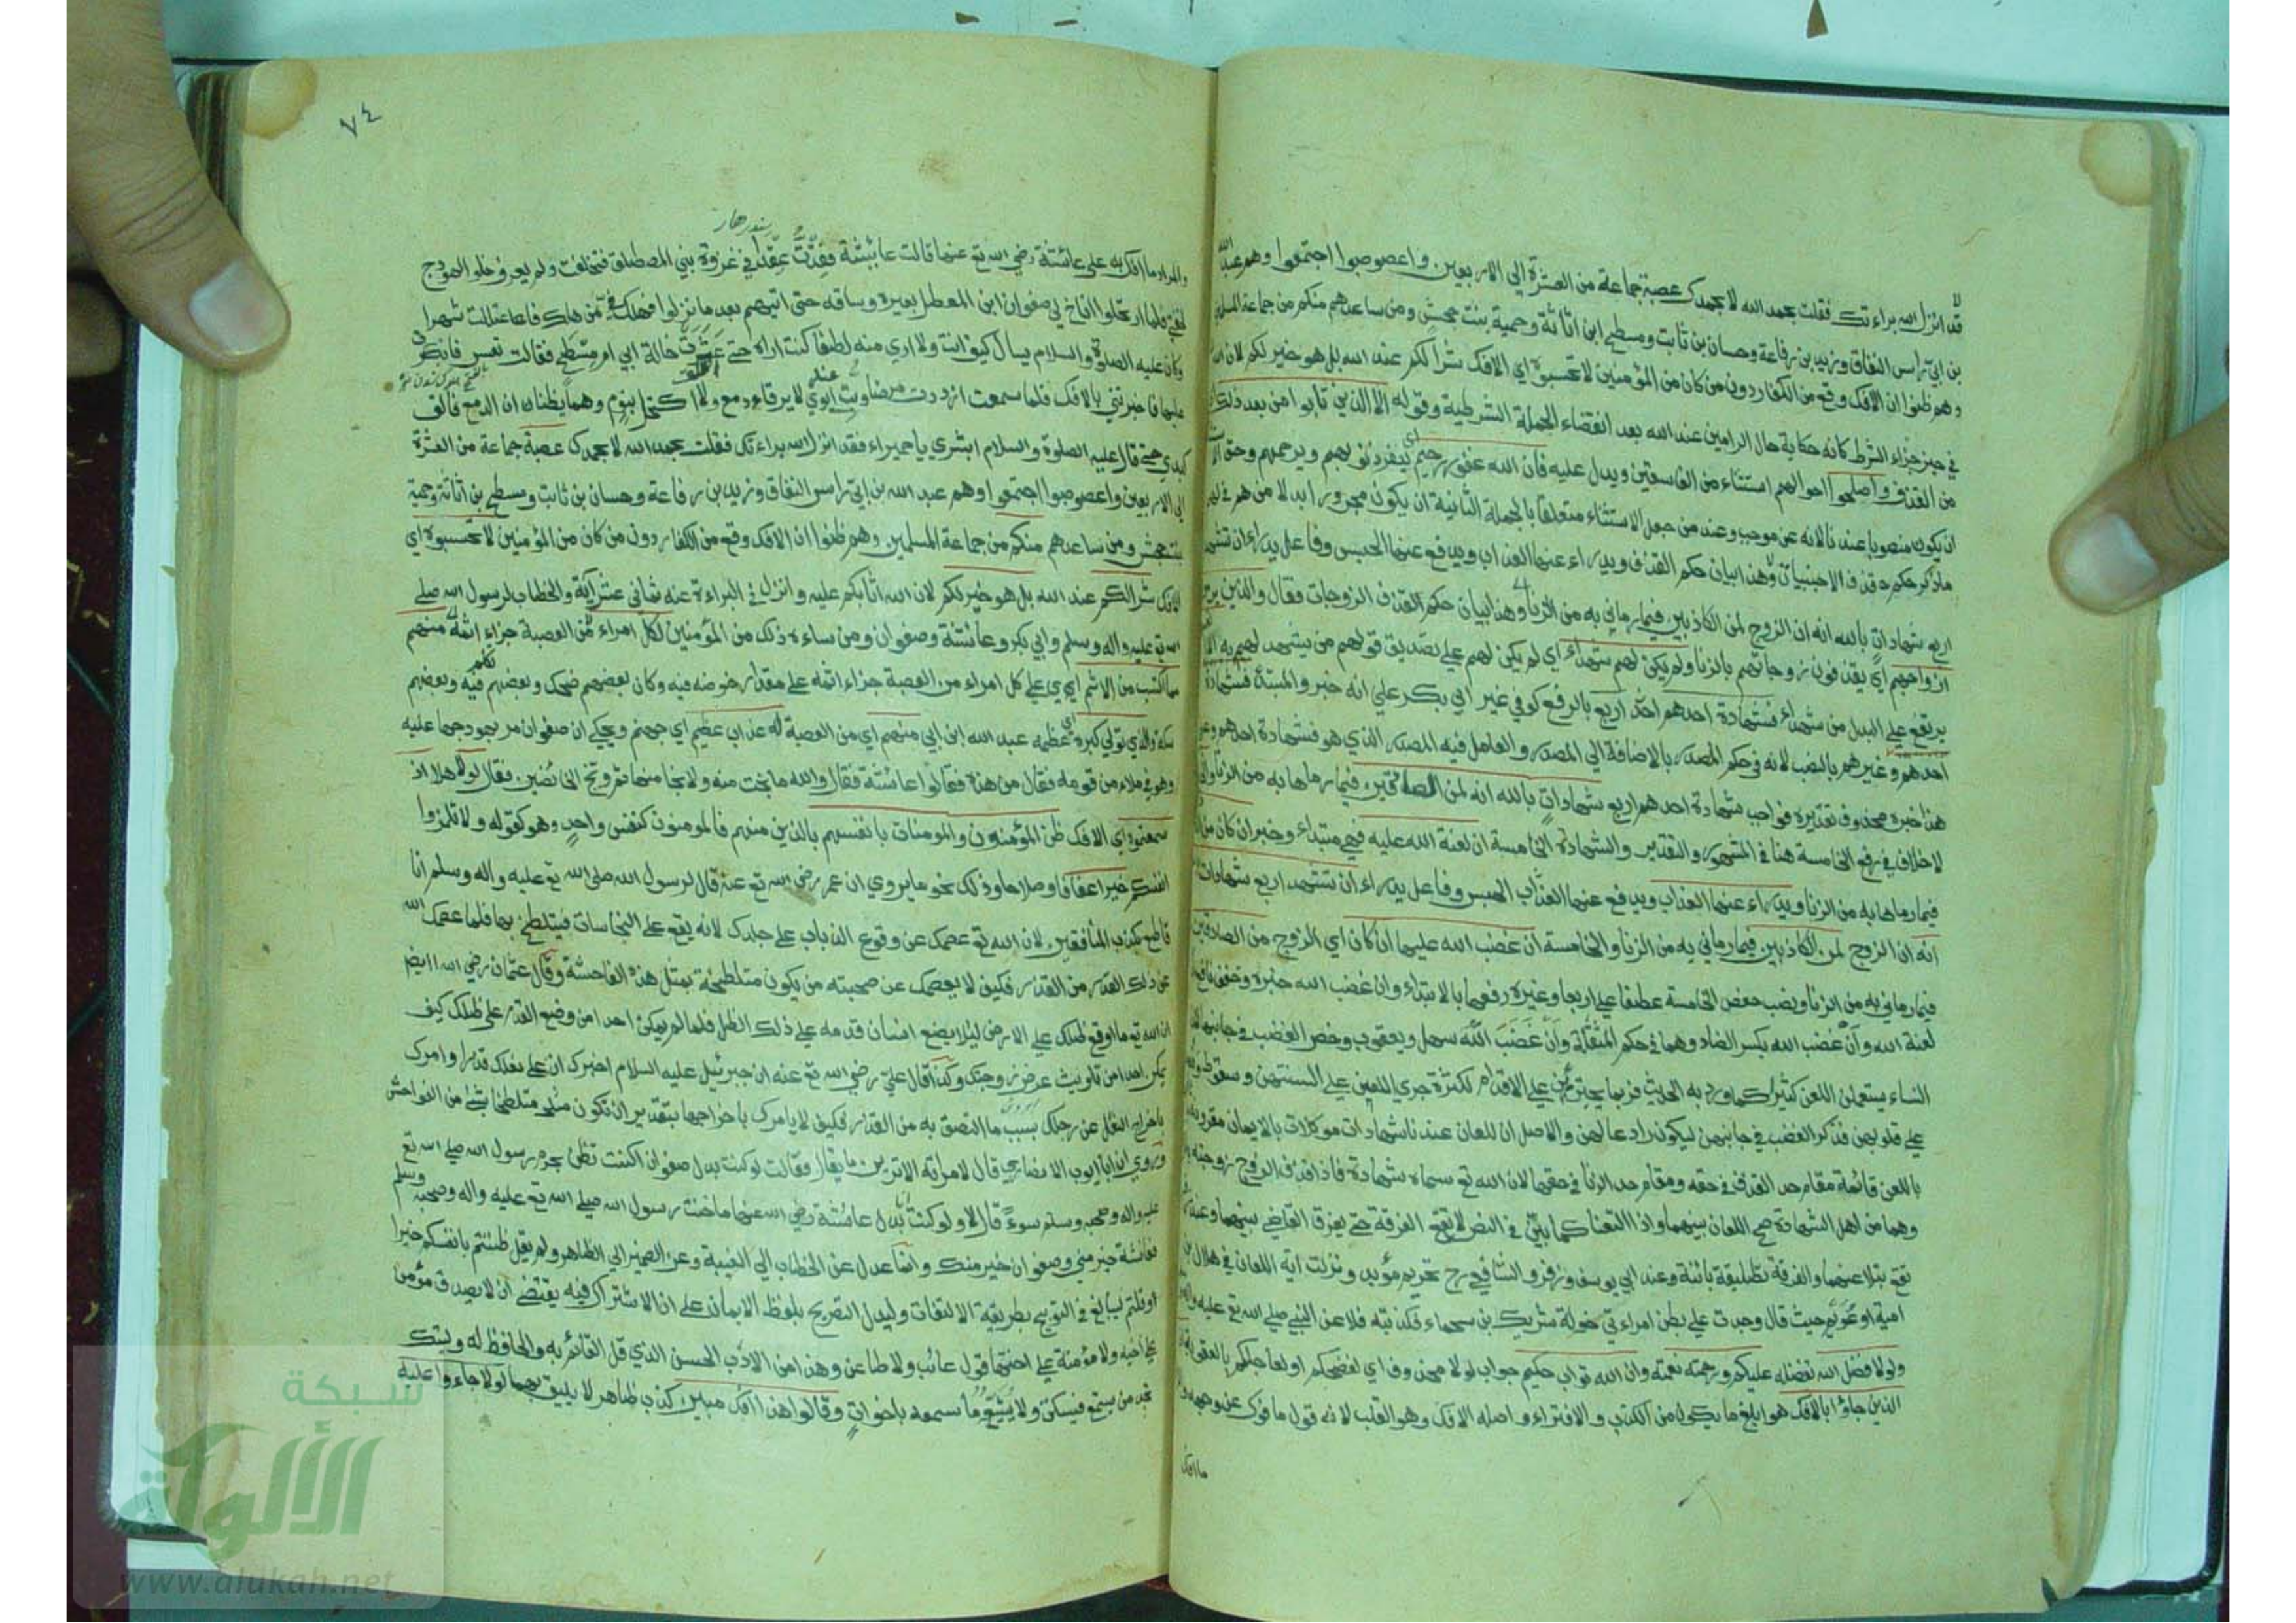 قد انزل الله براءتك فقلت بحمد الله لا بحمدك عصبة جماعة من العشرة الى الاربعين واعصوصبوا اجتمعوا وهم عبد الله
بن ابي راس النفاق وزيد بن رفاعة وحسان بن ثابت ومسطح ابن اثاثة وحمية بنت جحش ومن ساعدهم منكم من جماعة المسلمين
وهم ظنوا ان الافك وقع من الكفار دون من كان من المؤمنين لا تحسبوه اي الافك شرا لكم عند الله بل هو خير لكم لان
في حيز جزاء الشرط كانه حكاية حال الرامين عند الله بعد انقضاء الجملة الشرطية وقوله الا الذين تابوا من بعد ذلك
من القذف واصلحوا احوالهم استثناء من الفاسقين ويدل عليه فان الله غفور رحيم اي يغفر ذنوبهم ويرحمهم وحق
ان يكون منصوبا عندنا لانه عن موجب وعند من جعل الاستثناء متعلقا بالجملة الثانية ان يكون مجرورا بدلا من هم في لهم
ماذكر حكم قذف الاجنبيات وهذا بيان حكم القذف ويدراء عنها العذاب ويدفع عنها الحبس وفاعل يدراء ان تشهد
اربع شهادات بالله انه ان الزوج لمن الكاذبين فيما رماني به من الزنا وهذا بيان حكم القذف الزوجات فقال والذين يرمون
ازواجهم اي يقذفون زوجاتهم بالزنا ولم يكن لهم شهداء اي لم يكن لهم على تصديق قولهم من يشهد لهم به الا
يرتفع على البدل من شهداء فشهادة احدهم اربع بالرفع كوفي غير ابي بكر على انه خبر والمبتدأ فشهادة
احدهم وغيرهم بالنصب لانه في حكم المصدر بالاضافة الى المصدر والعامل فيه المصدر الذي هو فشهادة احدهم وعلى
هذا خبره محذوف تقديره فواجب شهادة احدهم اربع شهادات بالله انه لمن الصادقين فيما رماها به من الزنا
لا خلاف في رفع الخامسة هنا في المشهور والتقدير والشهادة الخامسة ان لعنة الله عليه فهي مبتداء وخبر ان كان من
فيما رماها به من الزنا ويدراء عنها العذاب ويدفع عنها العذاب الحبس وفاعل يدراء ان تشهد اربع شهادات
انه ان الزوج لمن الكاذبين فيما رماني به من الزنا والخامسة ان غضب الله عليها ان كان اي الزوج من الصادقين
فيما رماني به من الزنا ونصب حفص الخامسة عطفا على اربعا وغيره رفعها بالابتداء وان غضب الله خبره وخفف نافع
لعنة الله وان غضب الله بكسر الضاد وهما في حكم المثقلة وان غضب الله سهل ويعقوب وخص الغضب في جانبها
النساء يستعملن اللعن كثيرا كما ورد به الحديث فربما يجترئن على الاقدام لكثرة جري اللعن على السنتهن وسقوط
على قلوبهن فذكر الغضب في جانبهن ليكون رادعا لهن والاصل ان اللعان عندنا شهادات موكلات بالايمان مقرونة
باللعن قائمة مقام حد القذف في حقه ومقام حد الزنا في حقها لان الله تع سماه شهادة فاذا قذف الزوج زوجته
وهما من اهل الشهادة صح اللعان بينهما واذا التعنا كما بين في النص لا تقع الفرقة حتى يفرق القاضي بينهما وعند
تقع بتلاعنهما والفرقة تطليقة بائنة وعند ابي يوسف وزفر والشافعي رح تحريم مؤبد ونزلت اية اللعان في هلال بن
امية او عويمر حيث قال وجدت على بطن امراءتي خولة شريك بن سحماء فكذبته فلاعن النبي صلى الله تع عليه
ولولا فضل الله تفضله عليكم ورحمته نعمته وان الله تواب حكيم جواب لولا محذوف اي لفضحكم او لعاجلكم بالعقوبة
الذين جاؤا بالافك هو ابلغ ما يكون من الكذب والافتراء واصله الافك وهو القلب لانه قول مافوك عن وجهه
ما افك
٧٤
والمراد ما افك به على عائشة رضي الله تع عنها قالت عايشة فقدت عقدا في غزوة بني المصطلق فتخلفت ولم يعرف خلو الهودج
لخفتي فلما ارتحلوا اناخ لي صفوان ابن المعطل بعيره وساقه حتى اتيهم بعد ما نزلوا فهلك في من هلك فاعتللت شهرا
وكان عليه الصلوة والسلام يسال كيف انت ولا ارى منه لطفا كنت اراه حتى عثرت خالة ابي ام مسطح فقالت تعس فانكرت
عليها فاخبرتني بالافك فلما سمعت ازددت مرضا وبت عند ابوي لا يرقاء دمع ولا اكتحل بنوم وهما يظنان ان الدمع فالق
كبدي حتى قال عليه الصلوة والسلام ابشري يا حميراء فقد انزل الله براءتك فقلت بحمد الله لا بحمدك عصبة جماعة من العشرة
الى الاربعين واعصوصبوا اجتمعوا وهم عبد الله بن ابي راس النفاق وزيد بن رفاعة وحسان بن ثابت ومسطح بن اثاثة وحمية
بنت جحش ومن ساعدهم منكم من جماعة المسلمين وهم ظنوا ان الافك وقع من الكفار دون من كان من المؤمنين لا تحسبوه اي
الافك شرا لكم عند الله بل هو خير لكم لان الله اثابكم عليه وانزل في البراءة عنه ثماني عشر آية والخطاب لرسول الله صلى
الله تع عليه واله وسلم وابي بكر وعائشة وصفوان ومن ساءه ذلك من المؤمنين لكل امراء من العصبة جزاء اثمه منهم
ما اكتسب من الاثم اي على كل امراء من العصبة جزاء اثمه على مقدار خوضه فيه وكان بعضهم ضحك وبعضهم تكلم فيه وبعضهم
سكت والذي تولى كبره اي عظمه عبد الله ابن ابي منهم اي من العصبة له عذاب عظيم اي جهنم ويحكى ان صفوان مر بهودجها عليه
وهو في ملاء من قومه فقال من هذه فقالوا عائشة فقال والله ما نجت منه ولا نجا منها فقال لولا هلا اذ
سمعتموه اي الافك ظن المؤمنون والمومنات بانفسهم بالذين منهم فالمومنون كنفس واحد وهو كقوله ولا تلمزوا
انفسكم خيرا عفافا وصلاحا وذلك نحو ما يروى ان عمر رضي الله تع عنه قال لرسول الله صلى الله تع عليه واله وسلم انا
قاطع بكذب المنافقين لان الله تع عصمك عن وقوع الذباب على جلدك لانه يقع على النجاسات فيتلطخ بها فلما عصمك الله
عن ذلك القدر من القذر فكيف لا يعصمك عن صحبته من يكون متلطخة بمثل هذه الفاحشة وقال عثمان رضي الله ايضا
ان الله تع ما اوقع ظلك على الارض ليلا يضع انسان قدمه على ذلك الظل فلما لم يمكن احدا من وضع القدم على ظلك كيف
يمكن احدا من تلويث عرض زوجتك وكذا قال علي رضي الله تع عنه ان جبرئيل عليه السلام اخبرك ان على نعلك قذرا وامرك
باخراج النعل عن رجلك بسبب ما التصق به من القذر فكيف لا يامرك باخراجها بتقدير ان تكون متلطخة بشئ من الفواحش
وروي ان ابا ايوب الانصاري قال لامراته الا ترين ما يقال فقالت لو كنت بدل صفوان اكنت تظن بحرم رسول الله صلى الله تع
عليه واله وصحبه وسلم سوء قال لا ولو كنت انا بدل عائشة رضي الله عنها ما خنت رسول الله صلى الله تع عليه واله وصحبه وسلم
فعائشة خير مني وصفوان خير منك وانما عدل عن الخطاب الى الغيبة وعن الضمير الى الظاهر ولم يقل ظننتم بانفسكم خيرا
او قلتم ليبالغ في التوبيخ بطريقة الالتفات وليدل التصريح بلفظ الايمان على ان الاشتراك فيه يقتضي ان لا يصدق مؤمن
على اخيه ولا مؤمنة على اختها قول عائب ولا طاعن وهذا من الادب الحسن الذي قل القائم به والحافظ له وليتك
تجد من يسمع فيسكت ولا يشيع ما سمعه باخوات وقالوا هذا افك مبين كذب ظاهر لا يليق بهما لولا جاءوا عليه
شبكة
الألوكة
www.alukah.net